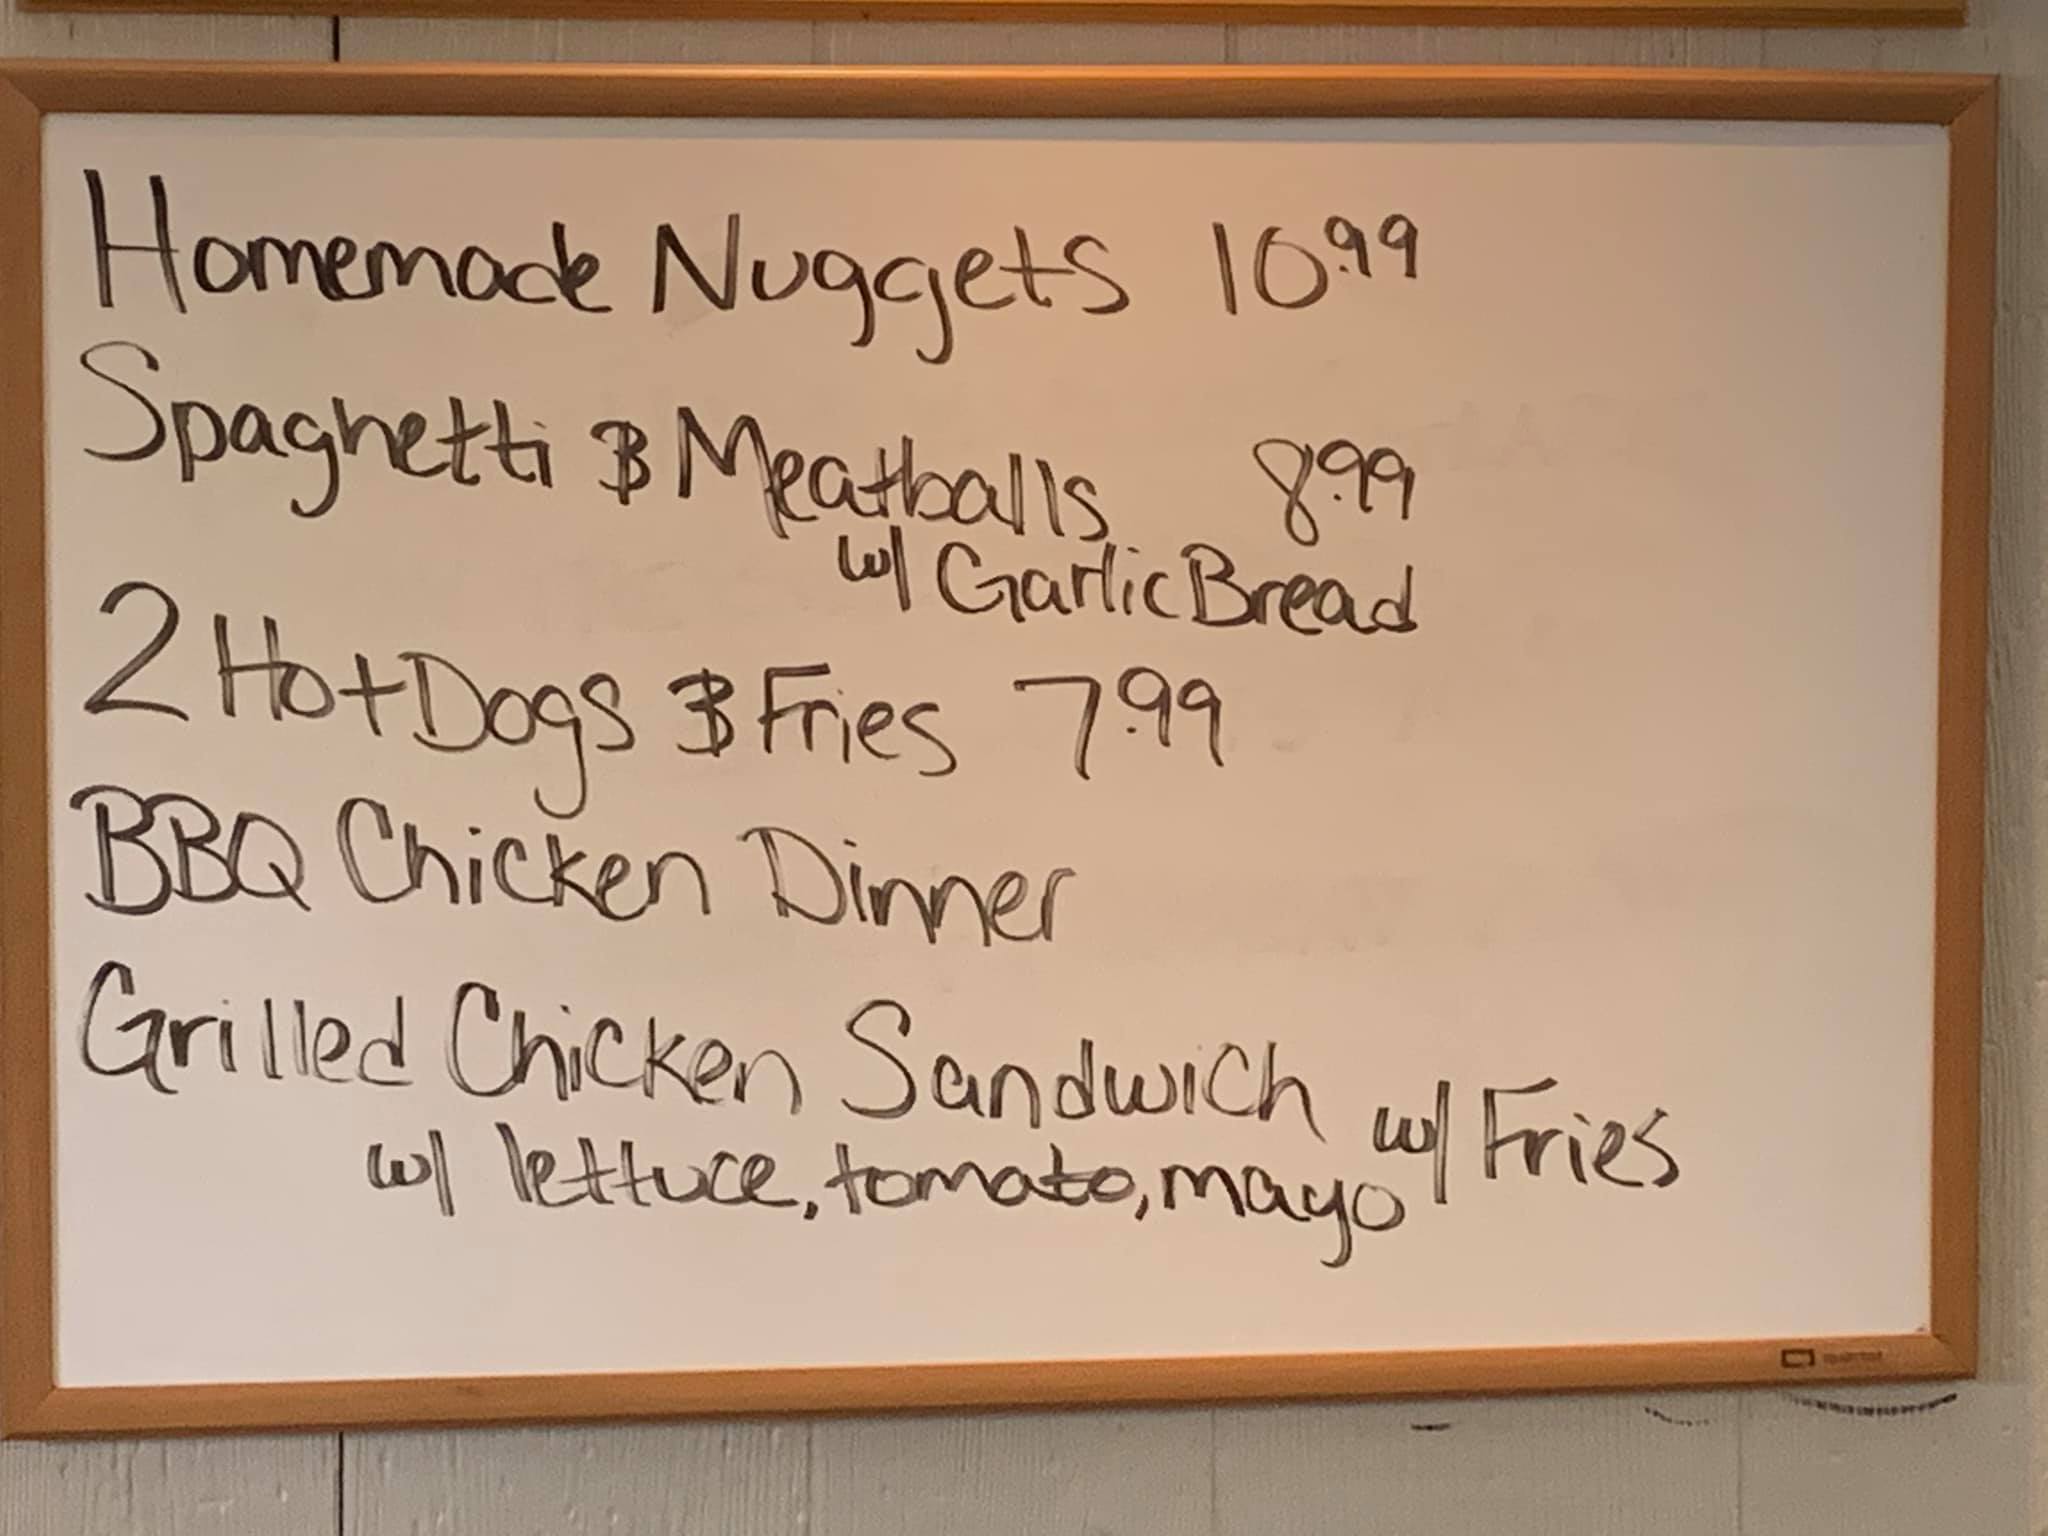 Homemade Nuggets 10.99
Spaghetti & Meatballs 8.99
w/ Garlic Bread
2 Hot Dogs & Fries 7.99
BBQ Chicken Dinner
Grilled Chicken Sandwich w/ Fries
w/ lettuce, tomato, mayo